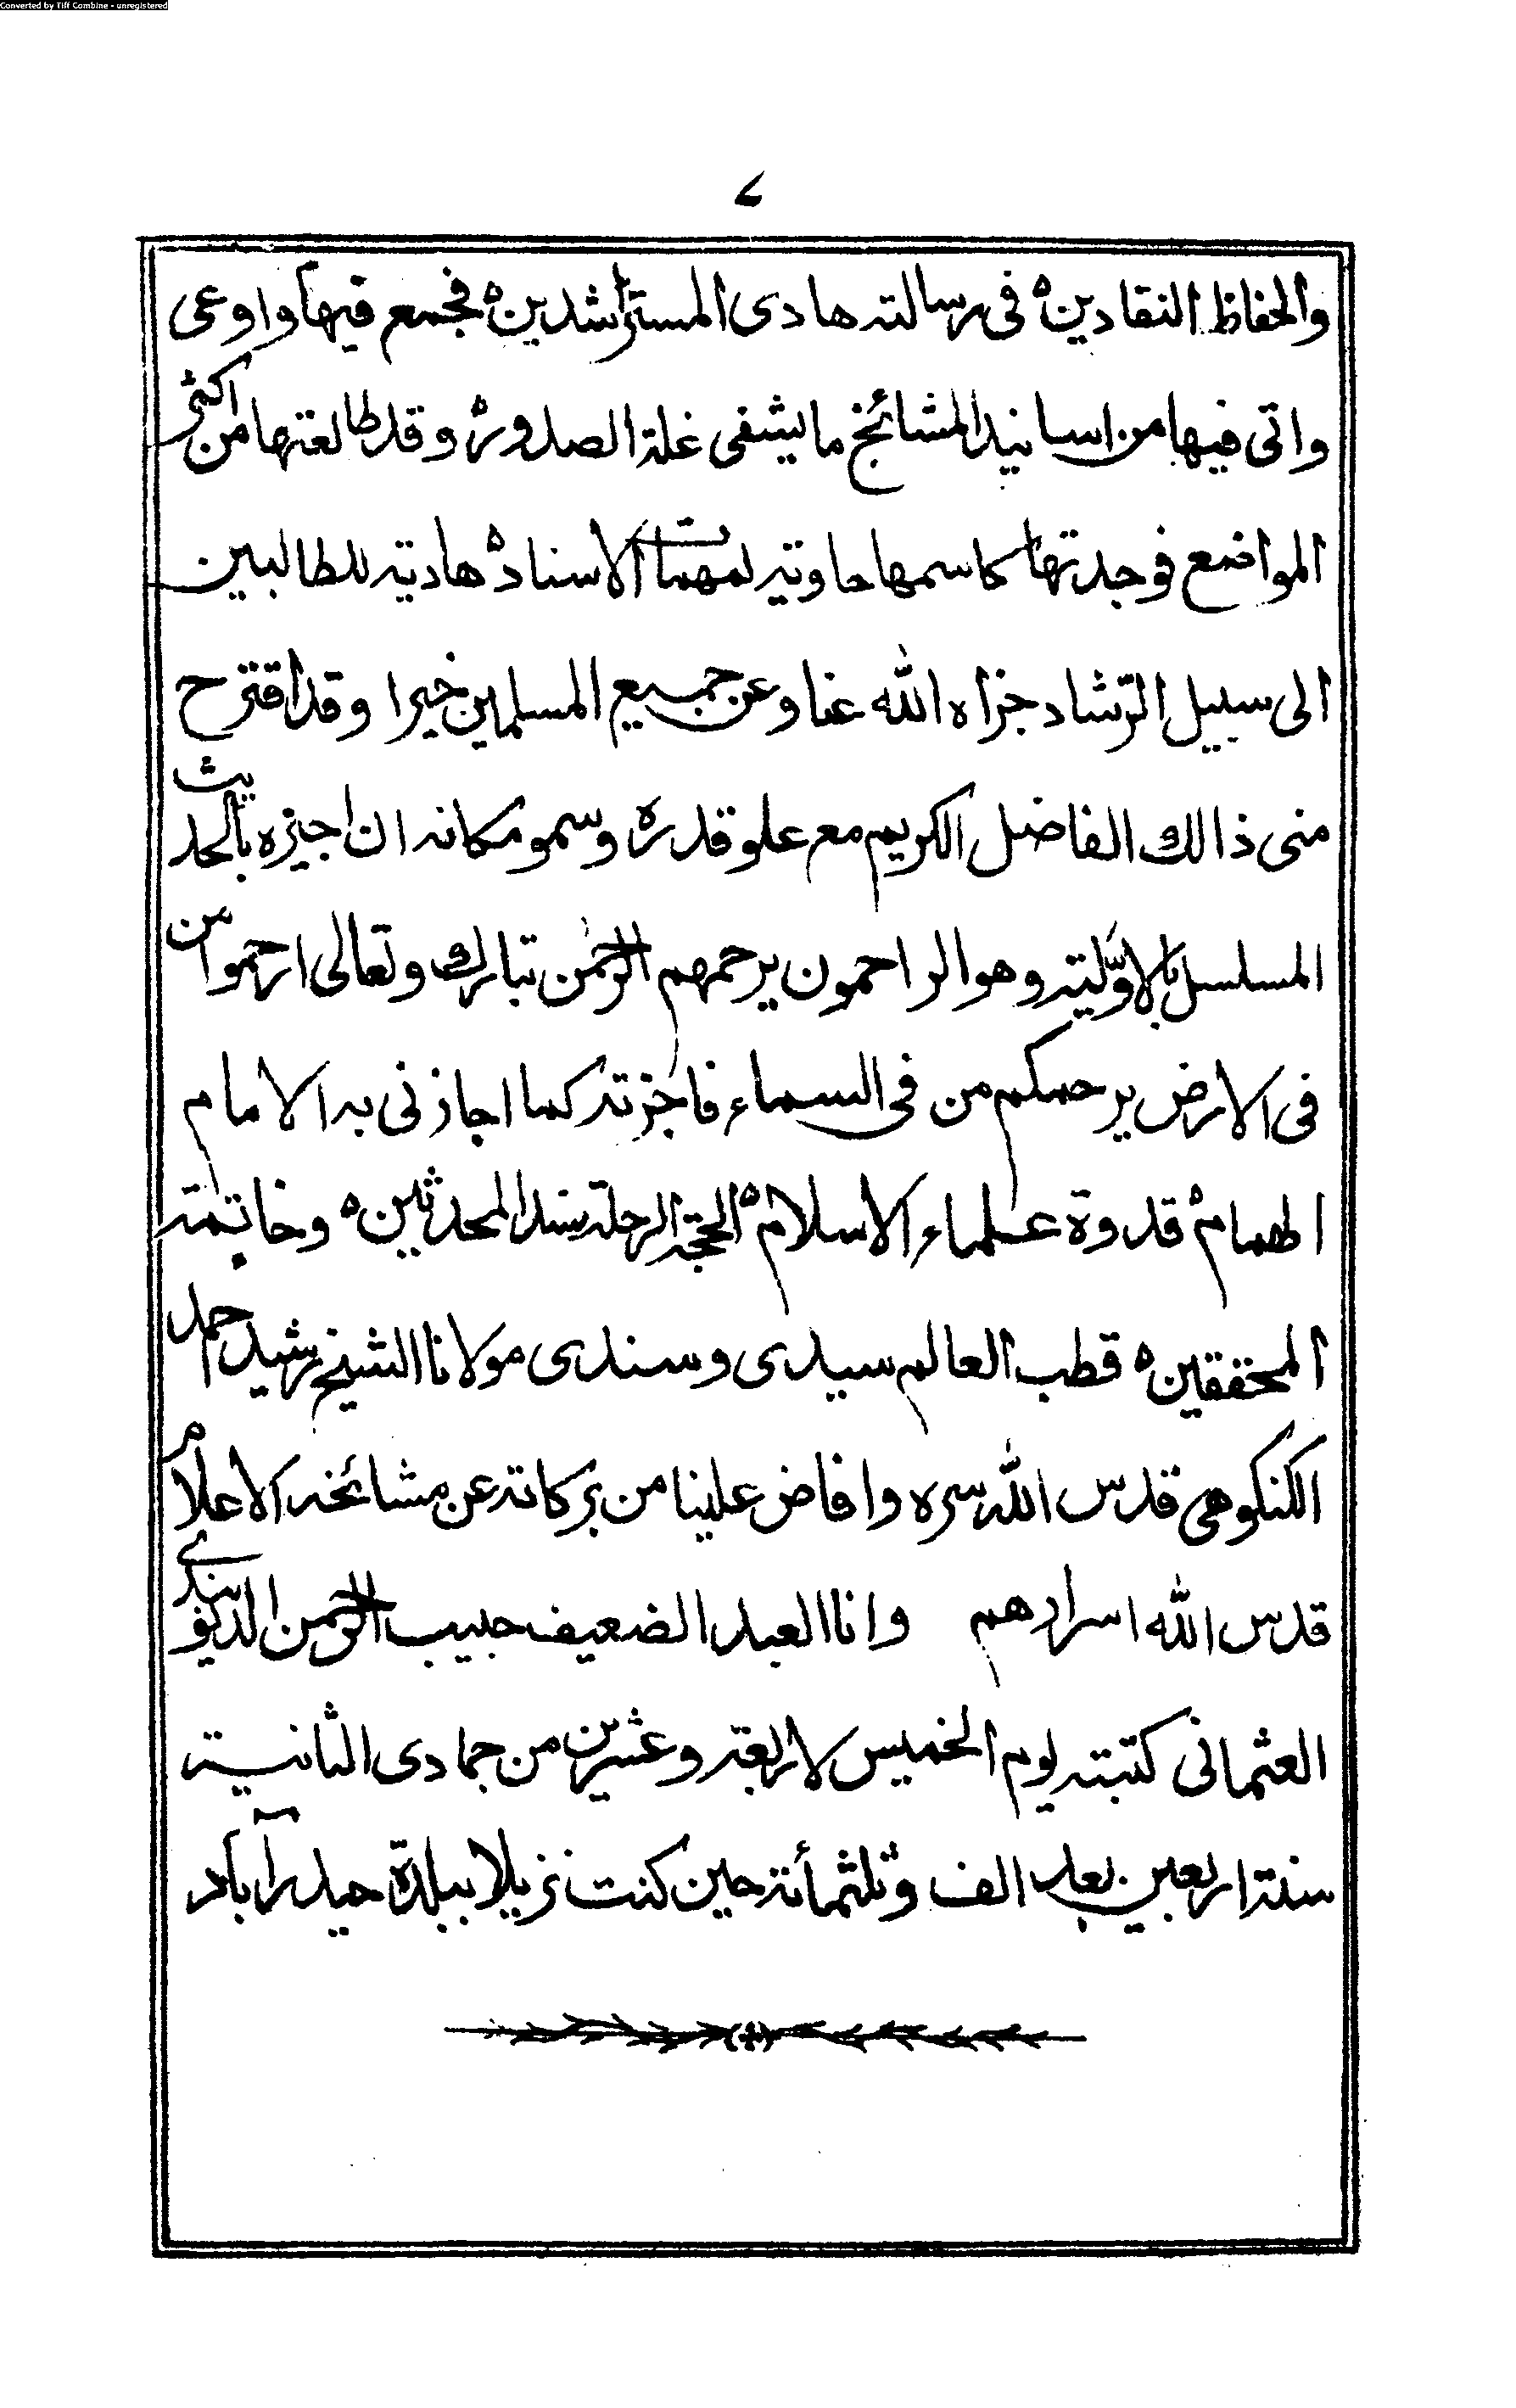 Converted by Tiff Combine - unregistered
۷
والحفاظ النقادین ه فی رسالته هادی المسترشدین ه فجمع فیها واوعی
واتی فیها من اسانید المشائخ ما یشفی غلة الصدور ه وقد طالعتها من اکثر
المواضع فوجدتها کاسمها حاویته لمهمات الاسناد ه هادیته للطالبین
الی سبیل الرّشاد جزاه الله عنا وعن جمیع المسلمین خیرا وقد اقترح
منی ذالك الفاضل الکریم مع علو قدره وسمو مکانه ان اجیزه بالحدیث
المسلسل بالاوّلیته وهو الراحمون یرحمهم الرحمٰن تبارك وتعالی ارحموا من
فی الارض یرحمکم من فی السماء فاجزته کما اجازنی به الامام
الهمام ه قدوة علماء الاسلام ه الحجة الرحلة سند المحدثین ه وخاتمته
المحققین ه قطب العالم سیدی وسندی مولانا الشیخ رشید احمد
الکنکوهی قدس الله سره وافاض علینا من برکاته عن مشائخه الاعلام
قدس الله اسرارهم وانا العبد الضعیف حبیب الرحمن الدیوبندے
العثمانی کتبته یوم الخمیس لاربعة وعشرین من جمادی الثانیة
سنة اربعین بعد الف وثلثمأته حین کنت نزیلا ببلدة حیدرآباد